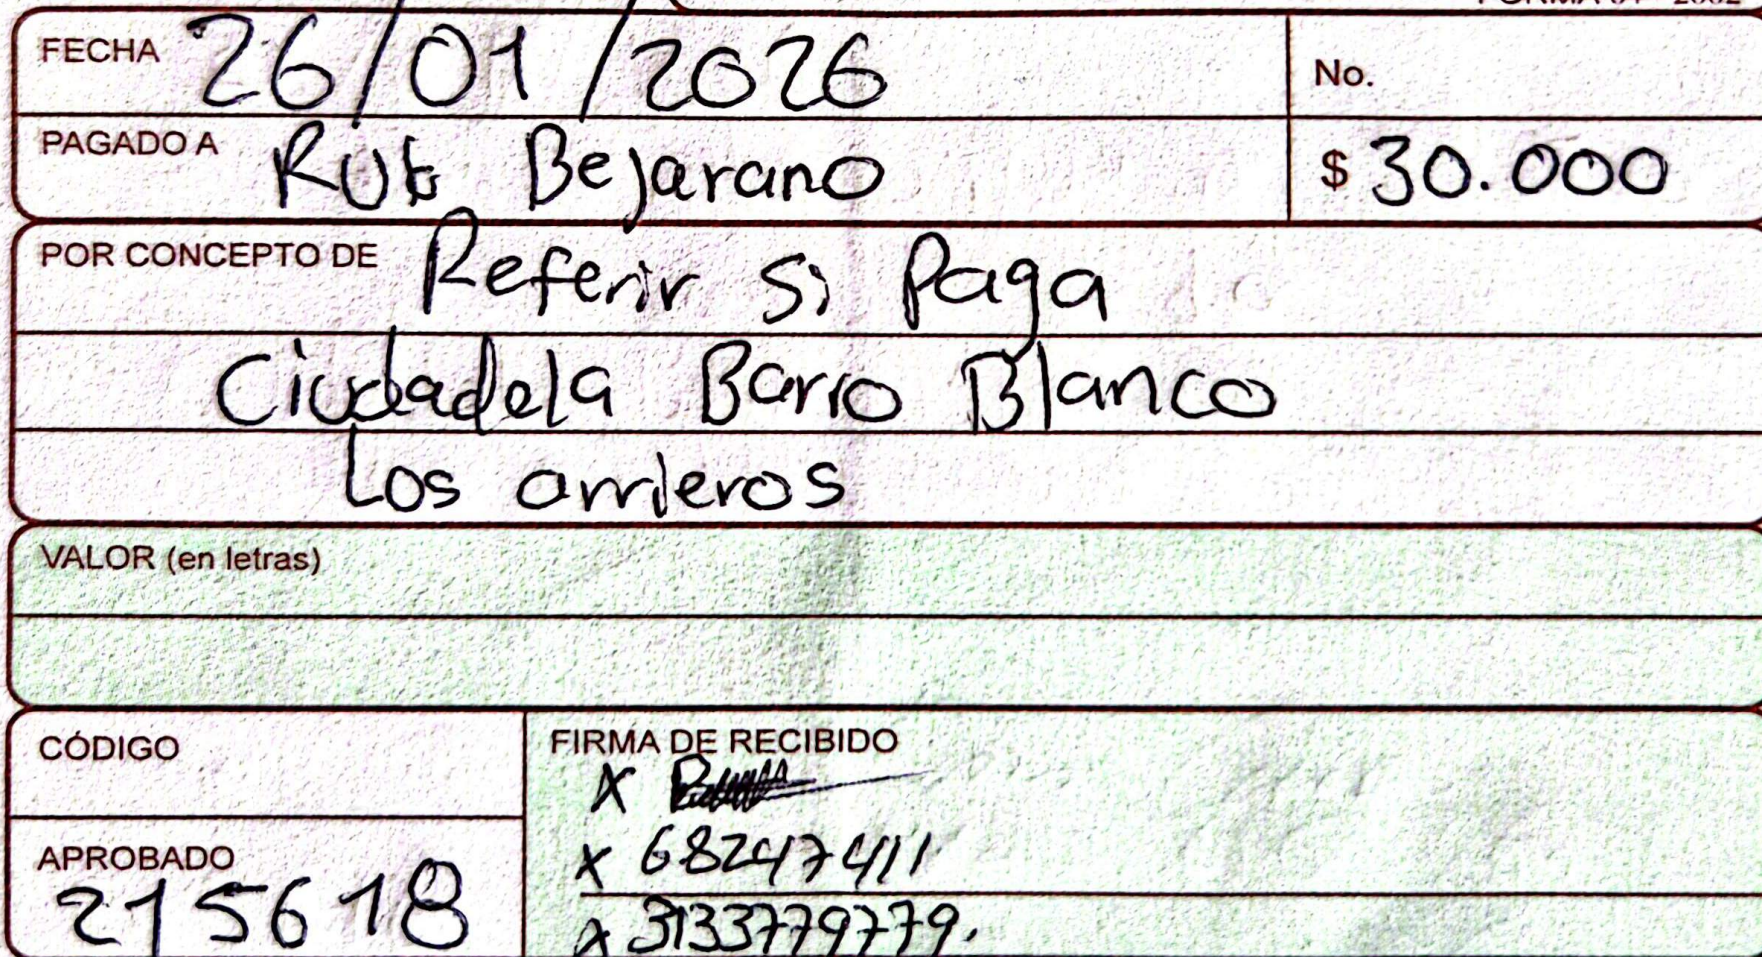 FECHA 26/01/2026
No.
PAGADO A Rut Bejarano
$ 30.000
POR CONCEPTO DE Referir si Paga
Ciudadela Barro Blanco
Los arrieros
VALOR (en letras)
CÓDIGO
FIRMA DE RECIBIDO
X
X 68247411
APROBADO
215618
X 3133779779.